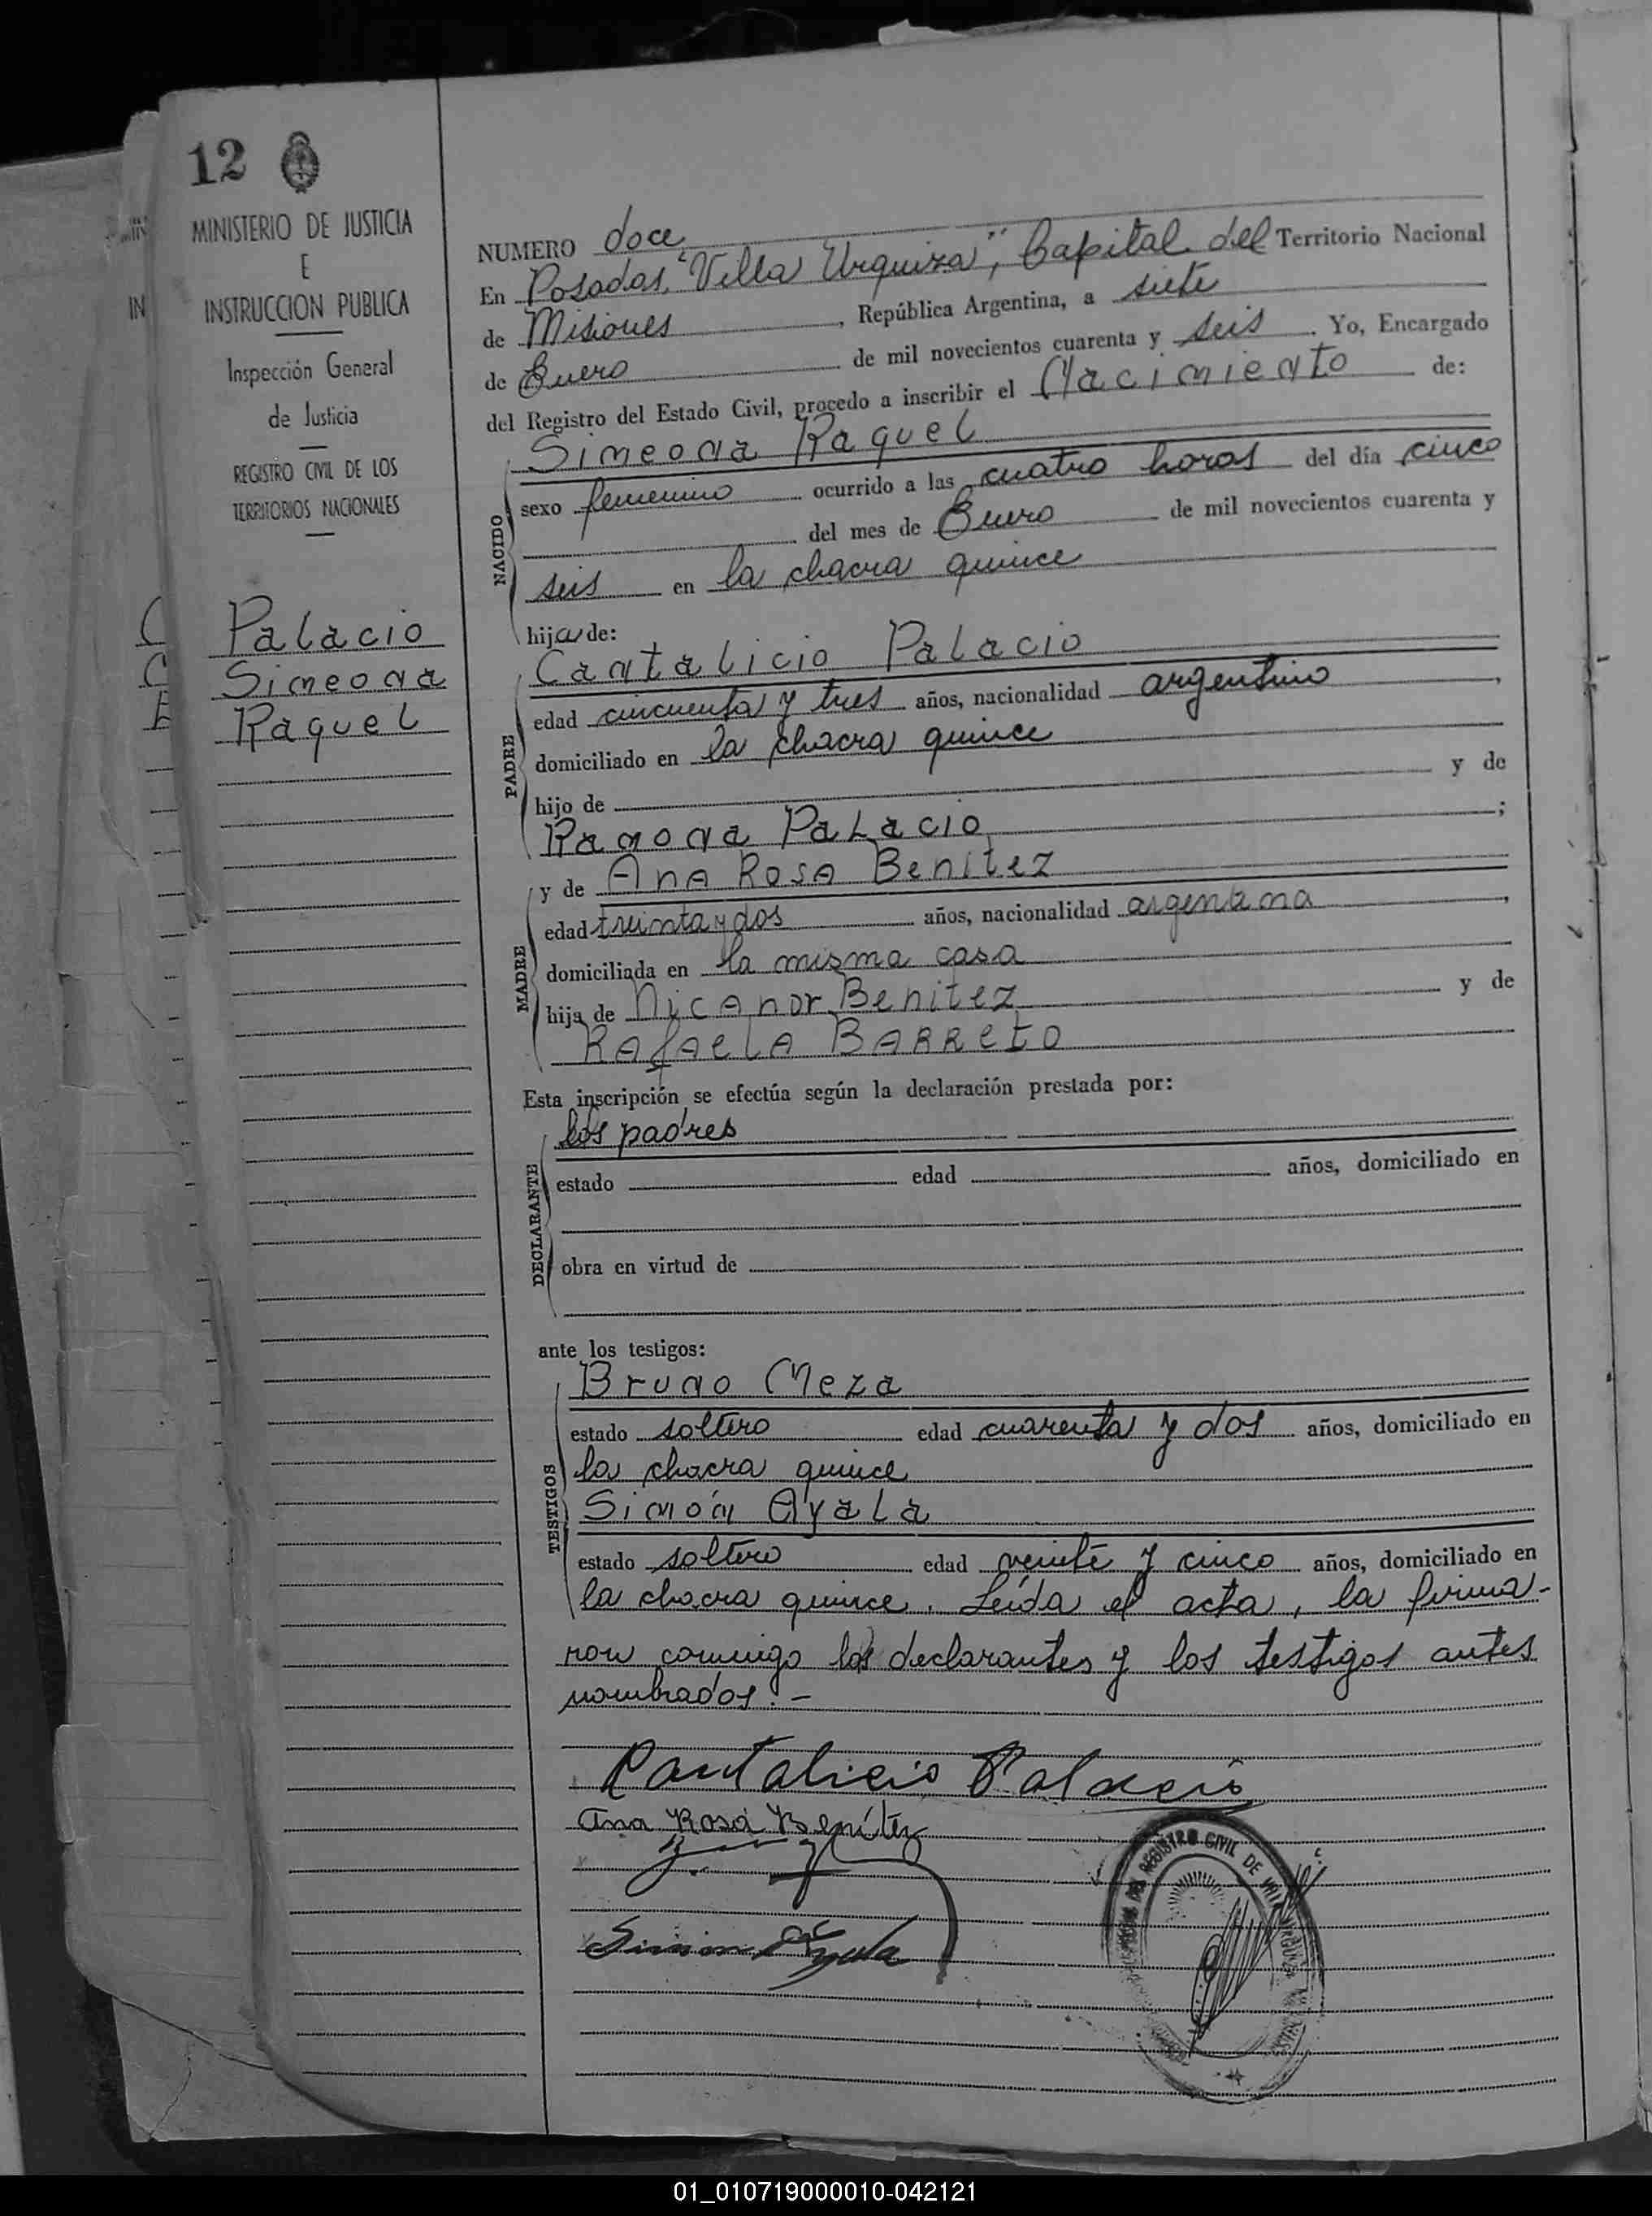 12
MINISTERIO DE JUSTICIA
E
INSTRUCCION PUBLICA
Inspección General
de Justicia
REGISTRO CIVIL DE LOS
TERRITORIOS NACIONALES
Palacio
Simeona
Raquel
NUMERO doce
En Posadas, "Villa Urquiza", Capital del Territorio Nacional
de Misiones, República Argentina, a siete
de Enero de mil novecientos cuarenta y seis. Yo, Encargado
del Registro del Estado Civil, procedo a inscribir el Nacimiento de:
NACIDO
Simeona Raquel
sexo femenino ocurrido a las cuatro horas del día cinco
del mes de Enero de mil novecientos cuarenta y
seis en la chacra quince
hija de:
PADRE
Cantalicio Palacio
edad cincuenta y tres años, nacionalidad argentino,
domiciliado en la chacra quince
hijo de y de
Ramona Palacio;
MADRE
y de Ana Rosa Benitez
edad treinta y dos años, nacionalidad argentina,
domiciliada en la misma casa
hija de Nicanor Benitez y de
Rafaela Barreto
Esta inscripción se efectúa según la declaración prestada por:
DECLARANTE
los padres
estado edad años, domiciliado en
obra en virtud de
ante los testigos:
TESTIGOS
Bruno Meza
estado soltero edad cuarenta y dos años, domiciliado en
la chacra quince
Simón Ayala
estado soltero edad veinte y cinco años, domiciliado en
la chacra quince. Leída el acta, la firma-
ron conmigo los declarantes y los testigos antes
nombrados.-
Cantalicio Palacio
Ana Rosa Benítez
Simon Ayala
REGISTRO CIVIL DE VILLA URQUIZA
01_010719000010-042121